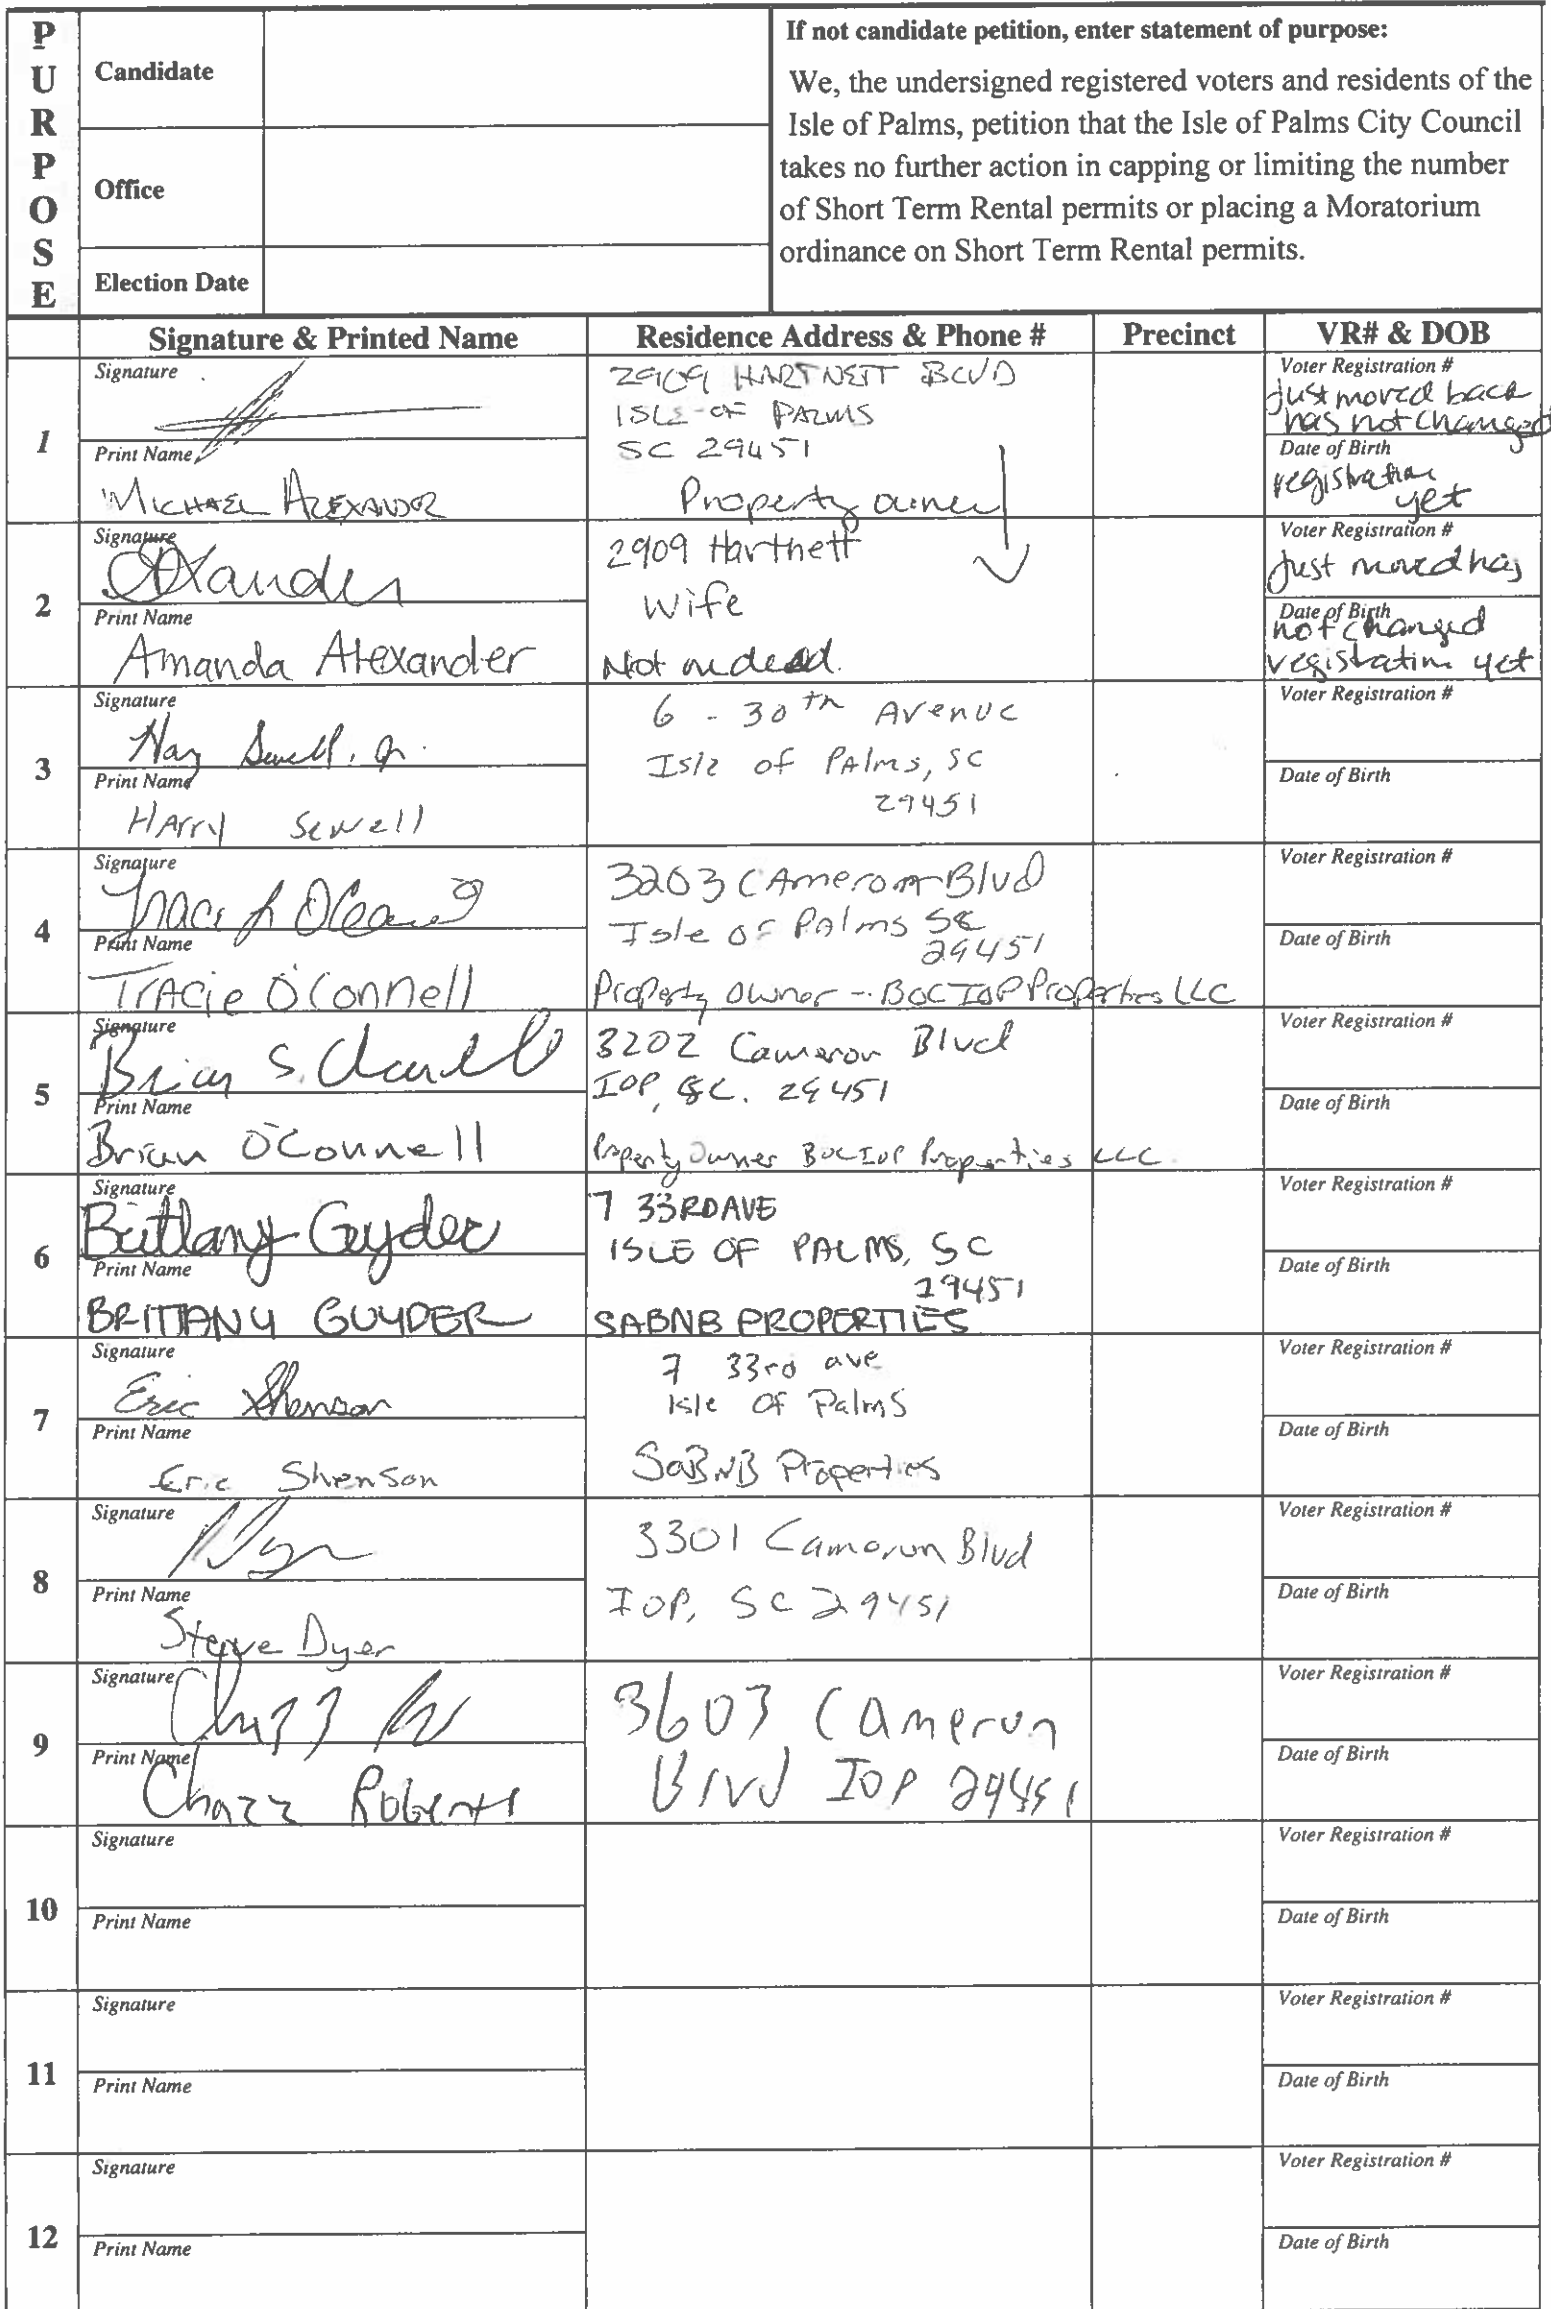 PURPOSE
Candidate
Office
Election Date
If not candidate petition, enter statement of purpose:
We, the undersigned registered voters and residents of the
Isle of Palms, petition that the Isle of Palms City Council
takes no further action in capping or limiting the number
of Short Term Rental permits or placing a Moratorium
ordinance on Short Term Rental permits.
Signature & Printed Name Residence Address & Phone # Precinct VR# & DOB
1
Signature
Print Name
MICHAEL ALEXANDER
2909 HARTNETT BLVD
ISLE OF PALMS
SC 29451
Property owner
Voter Registration #
just moved back
has not changed
Date of Birth
registration
yet
2
Signature
Print Name
Amanda Alexander
2909 Hartnett
Wife
Not on deed.
Voter Registration #
just moved has
Date of Birth
not changed
registration yet
3
Signature
Print Name
HArry Sewell
6 - 30th Avenue
Isle of PAlms, SC
29451
Voter Registration #
Date of Birth
4
Signature
Print Name
TRACie O'Connell
3203 CAmeron Blvd
Isle of PAlms SC
29451
Property Owner - BOC IOP Properties LLC
Voter Registration #
Date of Birth
5
Signature
Brian S.
Print Name
Brian O'Connell
3202 Cameron Blvd
IOP, SC. 29451
Property Owner BOCIOP Properties LLC
Voter Registration #
Date of Birth
6
Signature
Brittany Guyder
Print Name
BRITTANY GUYDER
7 33RD AVE
ISLE OF PALMS, SC
29451
SABNB PROPERTIES
Voter Registration #
Date of Birth
7
Signature
Eric Shenson
Print Name
Eric Shenson
7 33rd ave
Isle Of Palms
SaBNB Properties
Voter Registration #
Date of Birth
8
Signature
Print Name
Steve Dyer
3301 Cameron Blvd
IOP, SC 29451
Voter Registration #
Date of Birth
9
Signature
Chazz
Print Name
Chazz Roberts
3603 Cameron
Blvd IOP 29451
Voter Registration #
Date of Birth
10
Signature
Print Name
Voter Registration #
Date of Birth
11
Signature
Print Name
Voter Registration #
Date of Birth
12
Signature
Print Name
Voter Registration #
Date of Birth